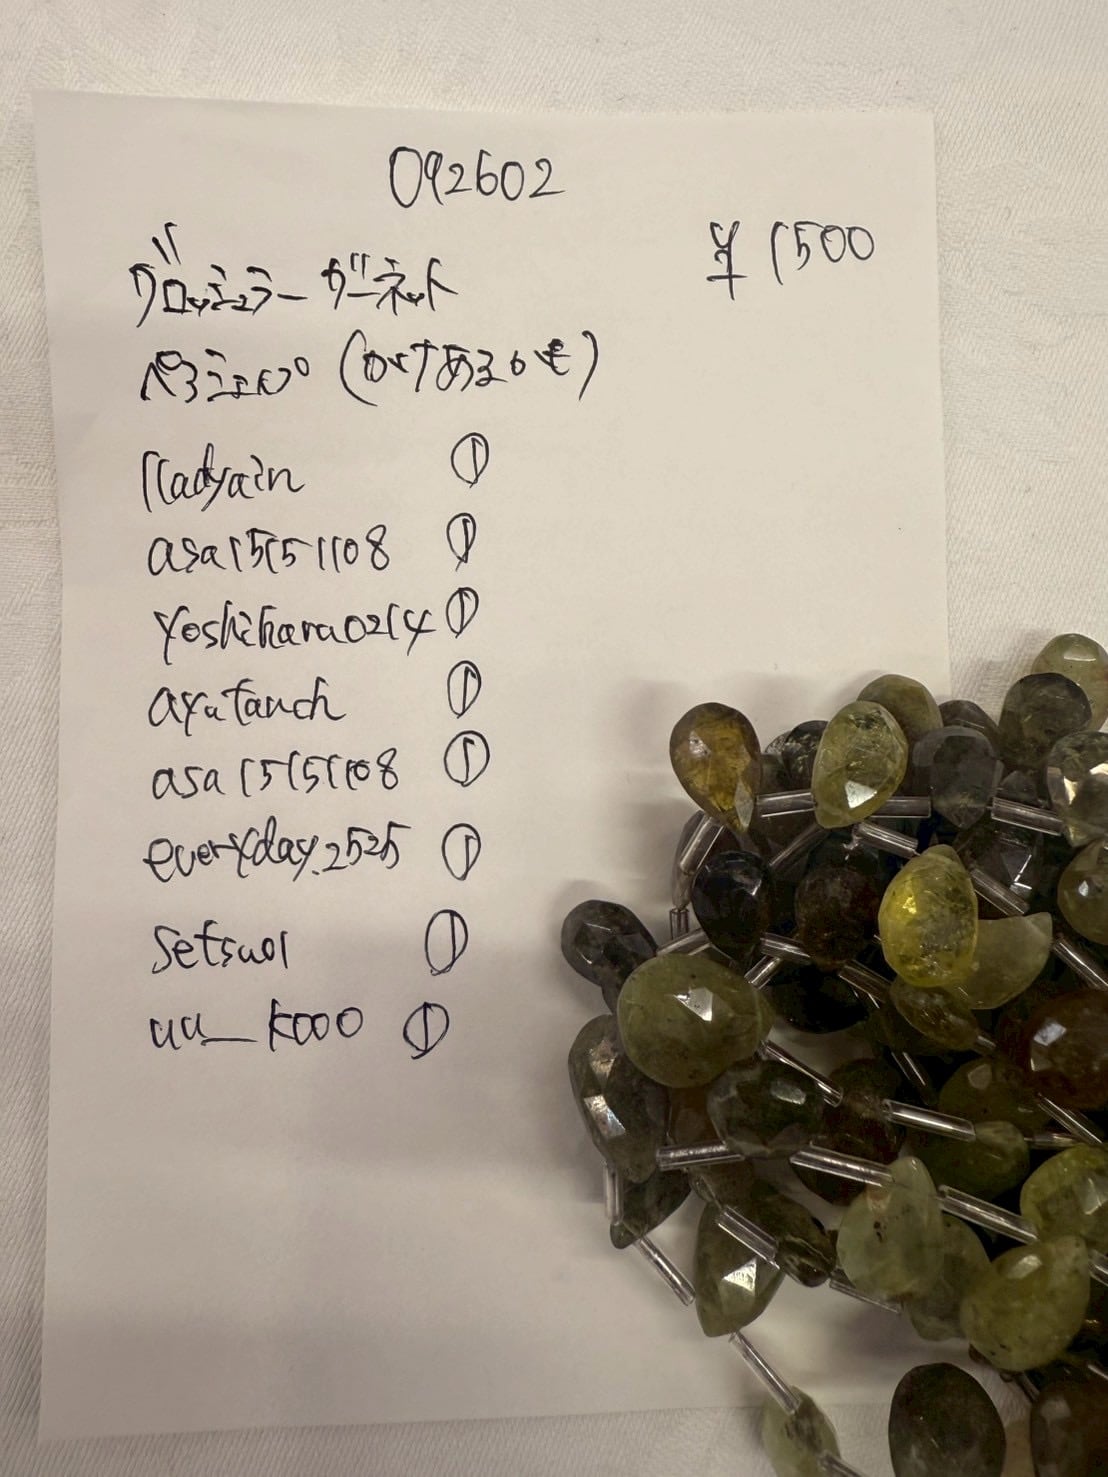 092602
¥1500
グロッシュラーガーネット
ペアシェイプ(かけあるかも)
lladyain ①
asa15151108 ①
yoshihara0214 ①
ayatanch ①
asa15151108 ①
everyday.2525 ①
setsu01 ①
uu_k000 ①